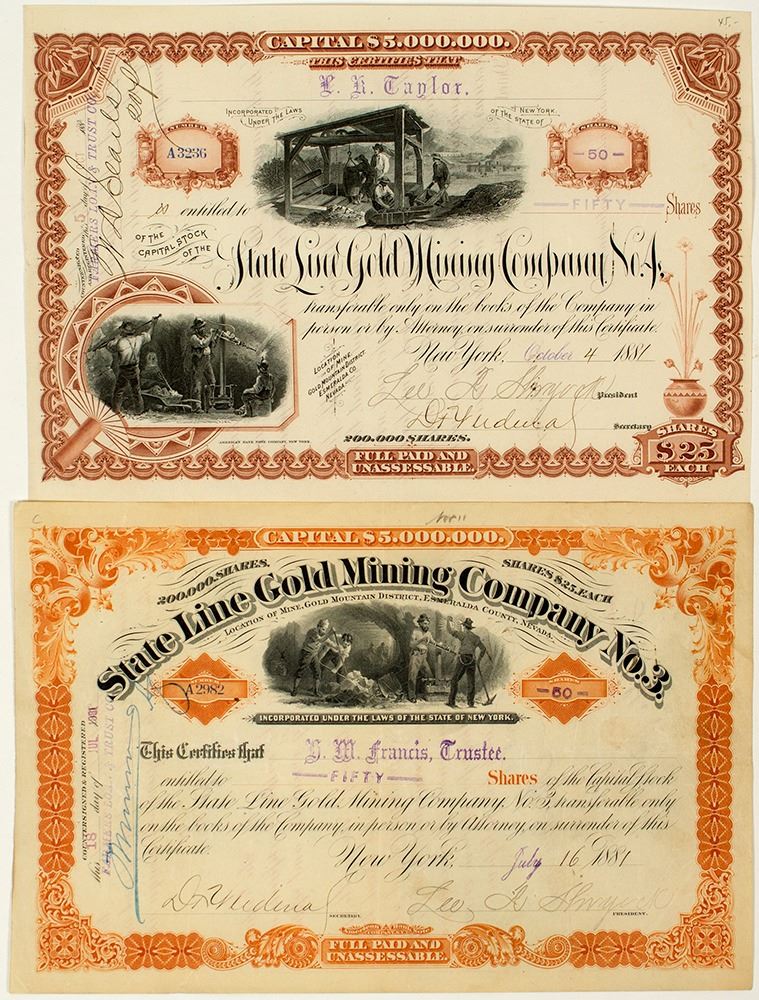 45,-
CAPITAL $5.000.000.
THIS CERTIFIES THAT
L. R. Taylor.
INCORPORATED UNDER THE LAWS OF THE STATE OF NEW YORK.
NUMBER
A3236
SHARES
-50-
is entitled to FIFTY Shares
OF THE CAPITAL STOCK OF THE
State Line Gold Mining Company No. 4,
transferable only on the books of the Company in
person or by Attorney, on surrender of this Certificate.
LOCATION OF MINE GOLD MOUNTAIN DISTRICT ESMERALDA CO. NEVADA.
New York, October 4 1881
President
Secretary
AMERICAN BANK NOTE COMPANY, NEW YORK.
200.000 SHARES.
FULL PAID AND
UNASSESSABLE.
SHARES
$25
EACH
& TRUST CO
CAPITAL $5.000.000.
200.000 SHARES.
SHARES $25. EACH
State Line Gold Mining Company No. 3.
LOCATION OF MINE, GOLD MOUNTAIN DISTRICT, ESMERALDA COUNTY, NEVADA.
A2982
SHARES
-50-
INCORPORATED UNDER THE LAWS OF THE STATE OF NEW YORK.
This Certifies that
M. Francis, Trustee.
entitled to FIFTY Shares of the Capital stock
of the State Line Gold Mining Company No. 3, transferable only
on the books of the Company, in person or by Attorney, on surrender of this
Certificate.
New York, July 16 1881
SECRETARY.
PRESIDENT.
FULL PAID AND
UNASSESSABLE.
COUNTERSIGNED & REGISTERED
this 18 day of JUL
& TRUST CO